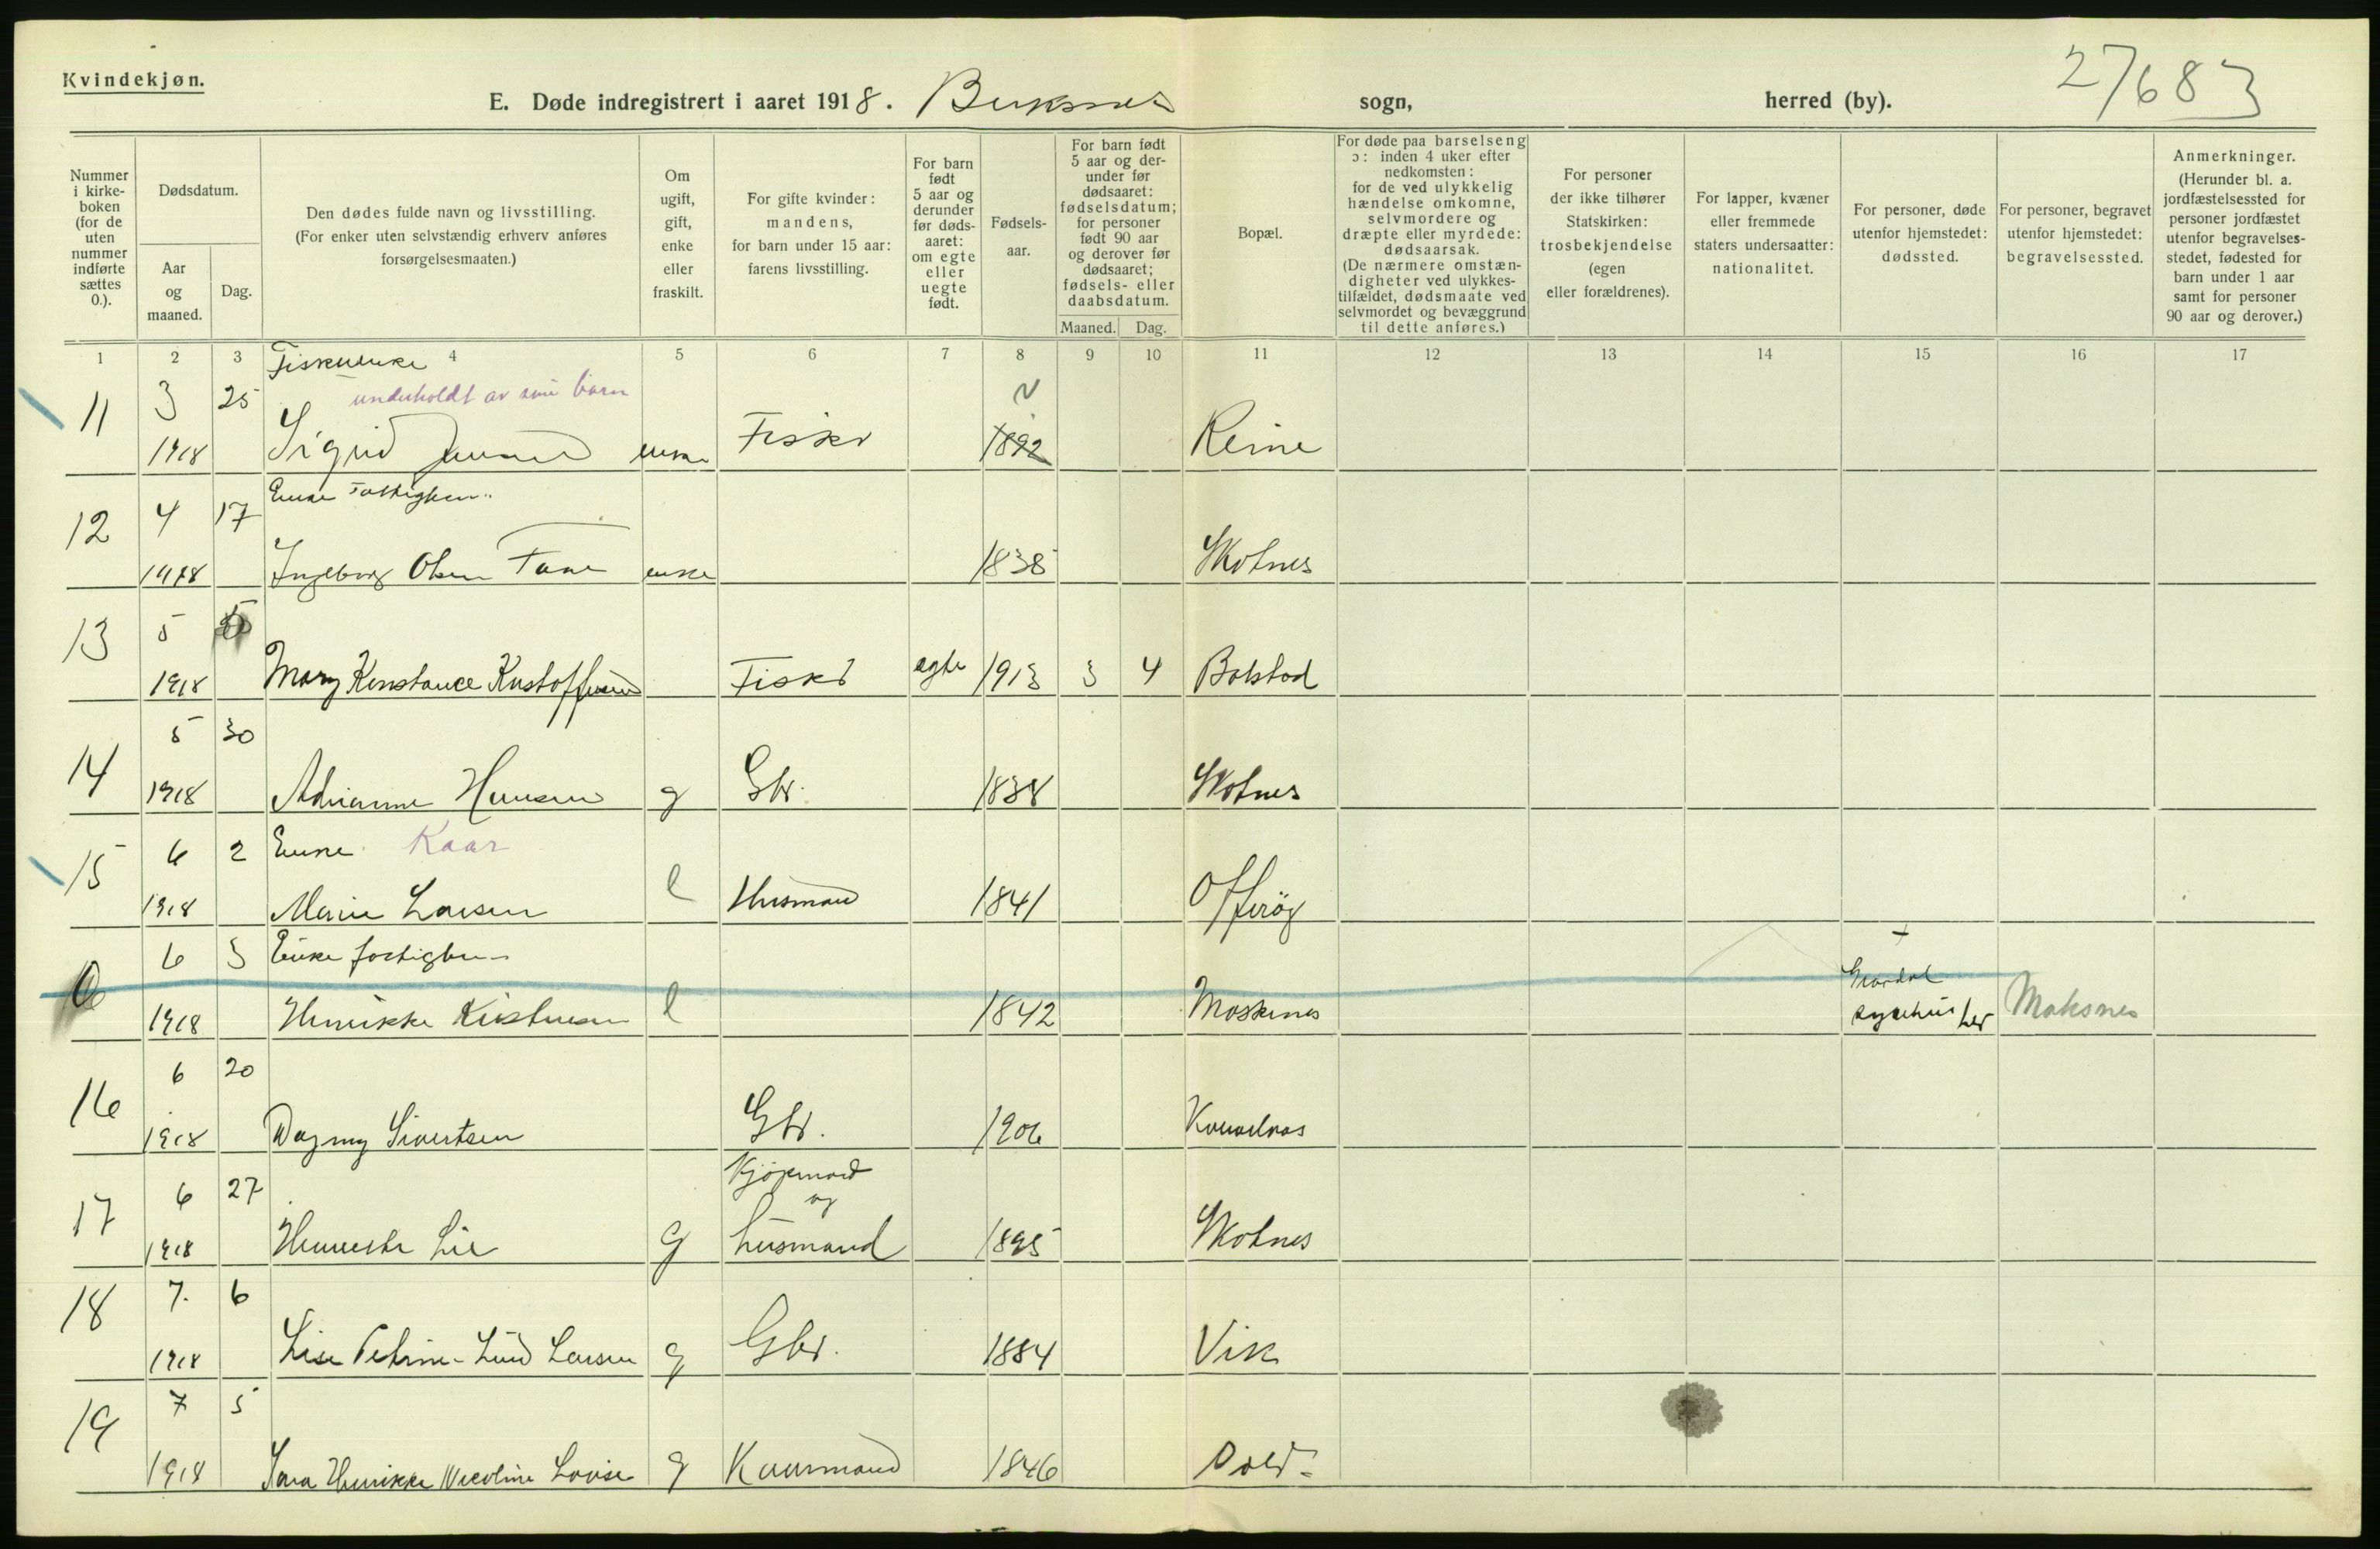 Kvindekjøn.
27683
E. Døde indregistrert i aaret 1918. Buksnes sogn, herred (by).
Nummer i kirkeboken (for de uten nummer indførte sættes 0.).
Dødsdatum.
Aar og maaned.
Dag.
Den dødes fulde navn og livsstilling. (For enker uten selvstændig erhverv anføres forsørgelsesmaaten.)
Om ugift, gift, enke eller fraskilt.
For gifte kvinder: mandens, for barn under 15 aar: farens livsstilling.
For barn født 5 aar og derunder før dødsaaret: om egte eller uegte født.
Fødselsaar.
For barn født 5 aar og derunder før dødsaaret: fødselsdatum; for personer født 90 aar og derover før dødsaaret; fødsels- eller daabsdatum.
Maaned. Dag.
Bopæl.
For døde paa barselseng ɔ: inden 4 uker efter nedkomsten: for de ved ulykkelig hændelse omkomne, selvmordere og dræpte eller myrdede: dødsaarsak. (De nærmere omstændigheter ved ulykkestilfældet, dødsmaate ved selvmordet og bevæggrund til dette anføres.)
For personer der ikke tilhører Statskirken: trosbekjendelse (egen eller forældrenes).
For lapper, kvæner eller fremmede staters undersaatter: nationalitet.
For personer, døde utenfor hjemstedet: dødssted.
For personer, begravet utenfor hjemstedet: begravelsessted.
Anmerkninger. (Herunder bl. a. jordfæstelsessted for personer jordfæstet utenfor begravelsesstedet, fødested for barn under 1 aar samt for personer 90 aar og derover.)
1 2 3 4 5 6 7 8 9 10 11 12 13 14 15 16 17
Fiskerenke
underholdt av sine barn
11 3 25
1918 Sigrid Jensen enke Fisker 1892 Reine
Enke Fattigken
12 4 17
1918 Ingeborg Olsen Tane enke 1838 Skotnes
13 5
1918 Mary Konstance Kristoffersen Fisker egte 1913 3 4 Bolstad
14 5 30
1918 Adrianne Hansen g Gbr. 1838 Skotnes
15 6 2 Enke Kaar
1918 Marie Larsen e Husmand 1841 Offersøy
0 6 3 Enke fattigken
1918 Henrikke Kristensen e 1842 Moskenes Gravdal sykehus her Moksnes
16 6 20
1918 Dagmy Sivertsen Gbr. 1906
17 6 27 Kjøpmand og
1918 Lie G husmand 1895 Skotnes
18 7. 6
1918 Lise Petrine Lund Larsen g Gbr. 1884 Vik
19 7 5
1918 Sara Henrikke Nicoline Lovise g Kaarmand 1846